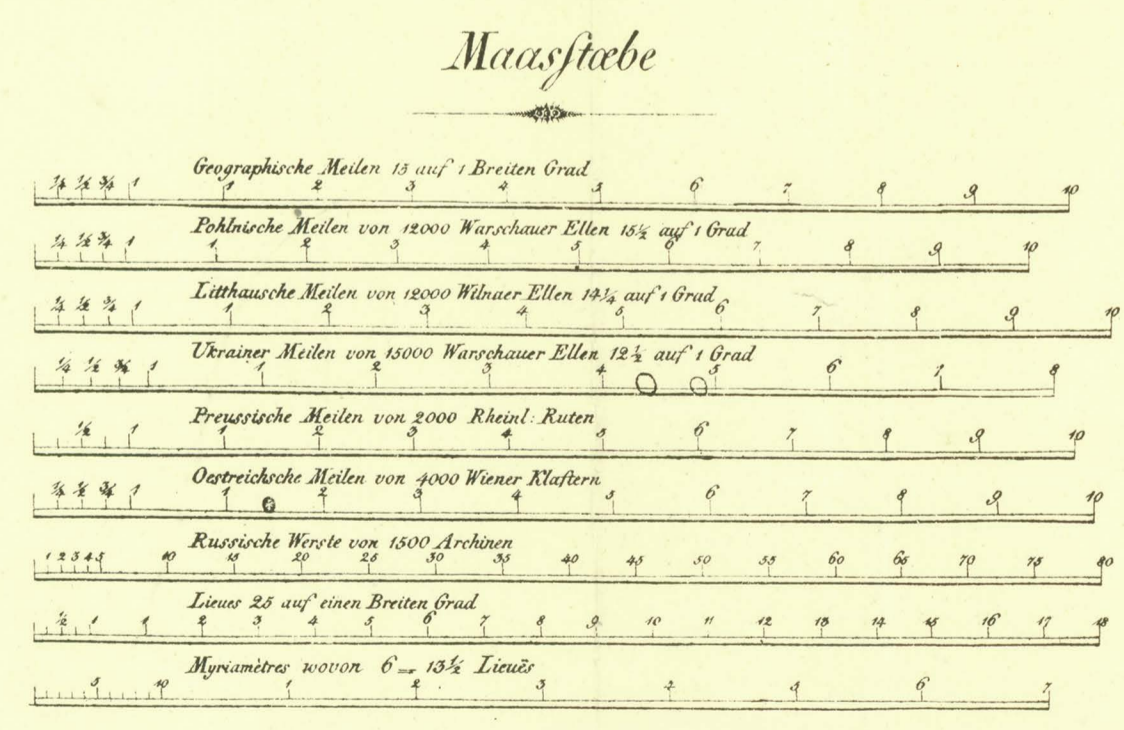 Maasſtæbe
Geographische Meilen 15 auf 1 Breiten Grad
¼ ½ ¾ 1 1 2 3 4 5 6 7 8 9 10
Pohlnische Meilen von 12000 Warschauer Ellen 15½ auf 1 Grad
¼ ½ ¾ 1 1 2 3 4 5 6 7 8 9 10
Litthausche Meilen von 12000 Wilnaer Ellen 14¼ auf 1 Grad
¼ ½ ¾ 1 1 2 3 4 5 6 7 8 9 10
Ukrainer Meilen von 15000 Warschauer Ellen 12½ auf 1 Grad
¼ ½ ¾ 1 1 2 3 4 5 6 7 8
Preussische Meilen von 2000 Rheinl: Ruten
½ 1 1 2 3 4 5 6 7 8 9 10
Oestreichsche Meilen von 4000 Wiener Klaftern
¼ ½ ¾ 1 1 2 3 4 5 6 7 8 9 10
Russische Werste von 1500 Archinen
1 2 3 4 5 10 15 20 25 30 35 40 45 50 55 60 65 70 75 80
Lieues 25 auf einen Breiten Grad
½ 1 1 2 3 4 5 6 7 8 9 10 11 12 13 14 15 16 17 18
Myriamètres wovon 6 = 13½ Lieuës
5 10 1 2 3 4 5 6 7